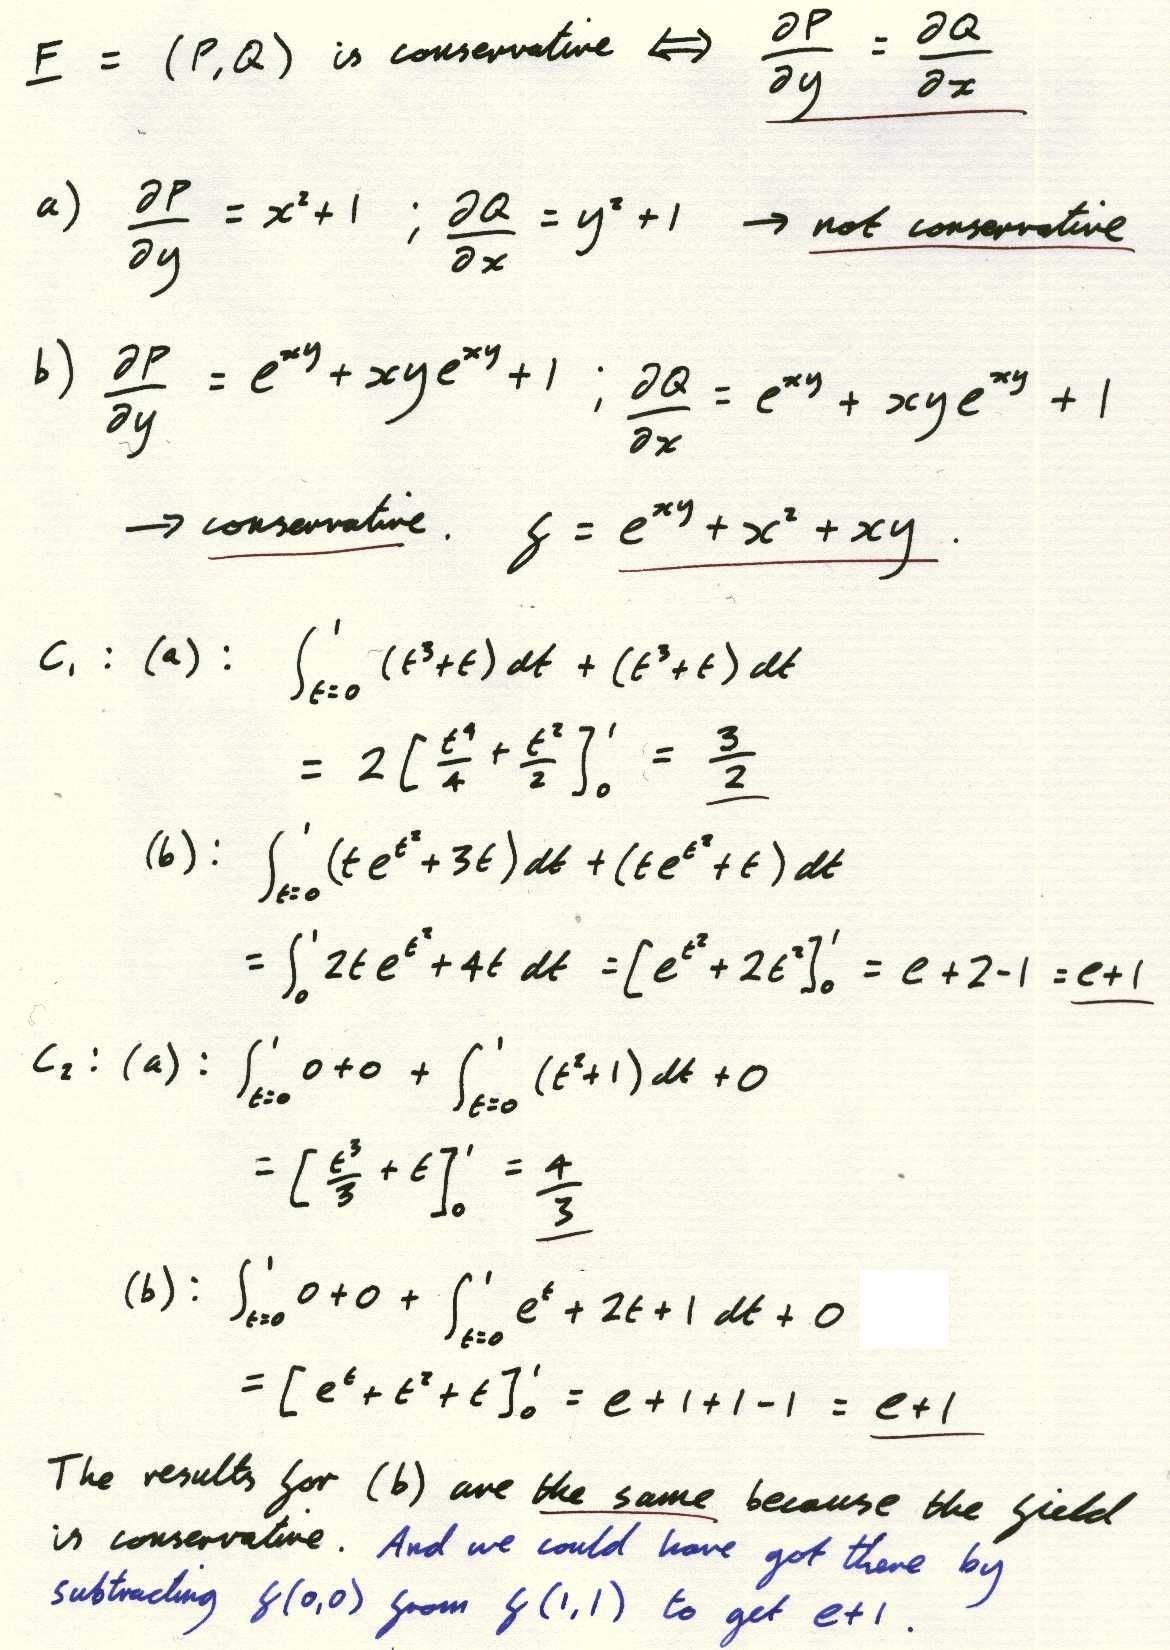 F = (P,Q) is conservative ⟺ ∂P/∂y = ∂Q/∂x
a) ∂P/∂y = x²+1 ; ∂Q/∂x = y²+1 → not conservative
b) ∂P/∂y = e^{xy} + xye^{xy} + 1 ; ∂Q/∂x = e^{xy} + xye^{xy} + 1
→ conservative. f = e^{xy} + x² + xy.
C₁ : (a) : ∫_{t=0}^{1} (t³+t) dt + (t³+t) dt
= 2[t⁴/4 + t²/2]₀¹ = 3/2
(b) : ∫_{t=0}^{1} (te^{t²} + 3t) dt + (te^{t²} + t) dt
= ∫₀¹ 2te^{t²} + 4t dt = [e^{t²} + 2t²]₀¹ = e+2-1 = e+1
C₂ : (a) : ∫_{t=0}^{1} 0+0 + ∫_{t=0}^{1} (t²+1) dt + 0
= [t³/3 + t]₀¹ = 4/3
(b) : ∫_{t=0}^{1} 0+0 + ∫_{t=0}^{1} e^t + 2t + 1 dt + 0
= [e^t + t² + t]₀¹ = e+1+1-1 = e+1
The results for (b) are the same because the field
is conservative. And we could have got there by
subtracting f(0,0) from f(1,1) to get e+1.